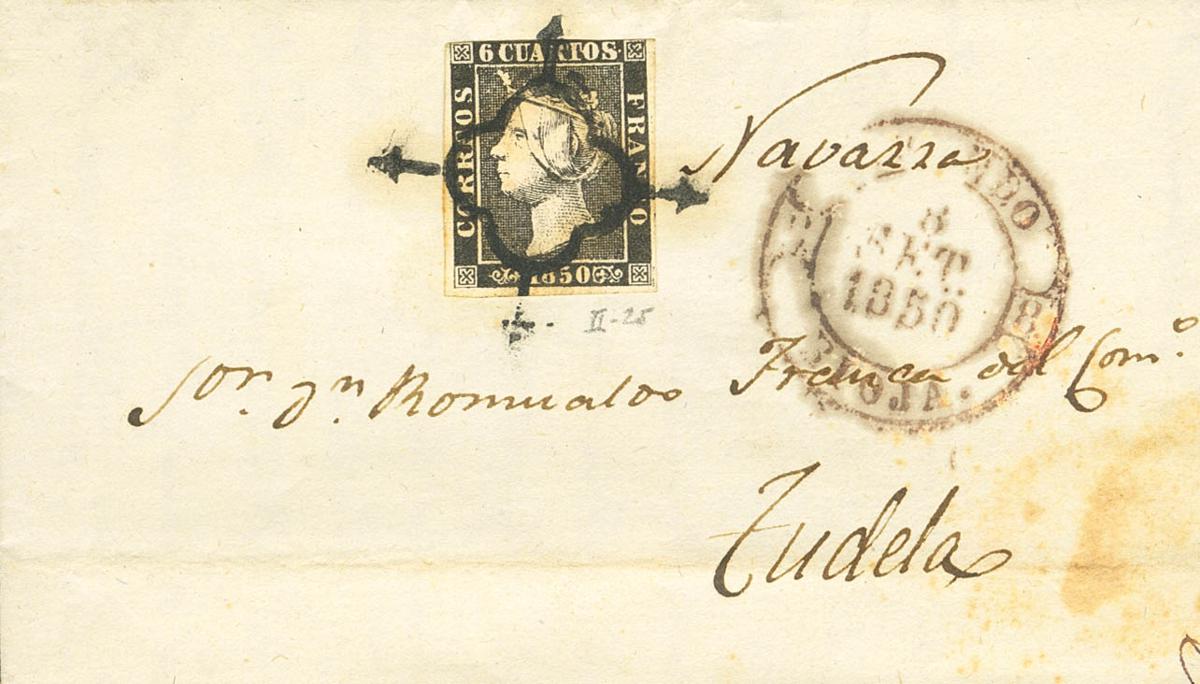 6 CUARTOS
CORREOS
FRANCO
1850
II-25
Navarra
8
SET.
1850
RIOJA.
Sor. Dn Romualdo del Comº
Tudela